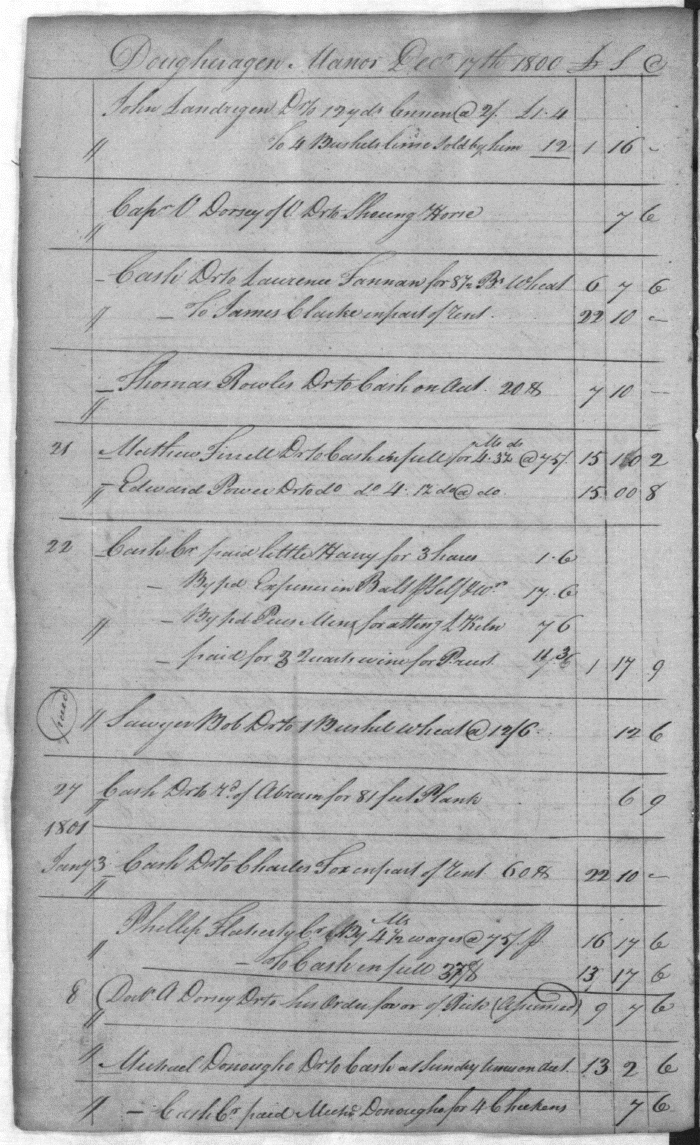 Dougheragen Manor Decr. 17th 1800 £ S
John Landregen Dr to 12 yds @ 2/. £1. 4
" To 4 Bushels lime sold by him 12 1 16 –
" Capn. V Dorsey of V Dr to Shoeing Horse 7 6
– Cash Dr to Laurence Fannan for 8½ Bs. Wheat 6 7 6
" – To James Clarke in part of Rent. 22 10 –
" – Thomas Rowles Dr to Cash on Act. 20 $ 7 10 –
21 – Mathew Tirrell Dr to Cash in full for Mo 4. ds 32 @ 75/ 15 10 2
" – Edward Power Dr to do do 4. 12 ds @ do. 15 00 8
22 Cash Cr paid little Harry for 3 hares 1. 6
– By pd Expences in Balt 17. 6
" – By pd for L Kiln 7 6
– paid for Quarts wine for 1 17 9
paid " Sawyer Bob Dr to 1 Bushel Wheat @ 12/6. 12 6
27 Cash Dr to rd. of Abram for 81 feet Plank 6 9
1801
Jany 3 – Cash Dr to Charles Fox in part of Rent 60 $ 22 10 –
" Phillip Flaherty Cr By 4½ Ms wages @ 75/ 16 17 6
– To Cash in full 37 $ 13 17 6
8 " Doctr. A Dorsey Dr to his Order favor of (Assumed) 9 7 6
" Michael Donoughe Dr to Cash at Sundry times on Act. 13 2 6
" – Cash Cr. paid Michl. Donoughe for 4 Chickens 7 6